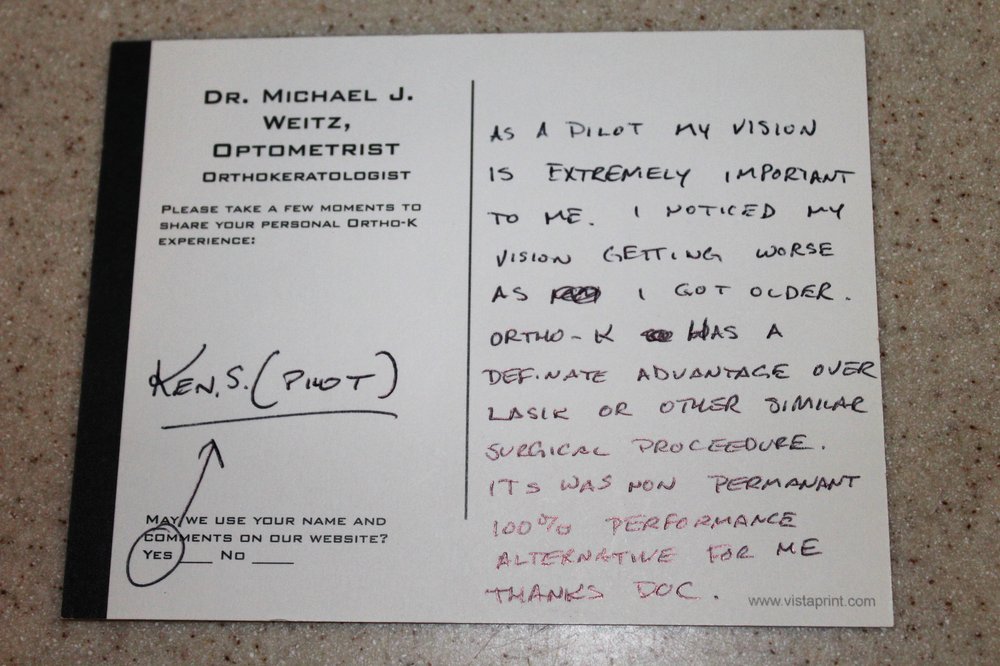 DR. MICHAEL J.
WEITZ,
OPTOMETRIST
ORTHOKERATOLOGIST
PLEASE TAKE A FEW MOMENTS TO
SHARE YOUR PERSONAL ORTHO-K
EXPERIENCE:
KEN. S. (PILOT)
MAY WE USE YOUR NAME AND
COMMENTS ON OUR WEBSITE?
YES ___ NO ___
AS A PILOT MY VISION
IS EXTREMELY IMPORTANT
TO ME. I NOTICED MY
VISION GETTING WORSE
AS I GOT OLDER.
ORTHO-K HAS A
DEFINATE ADVANTAGE OVER
LASIK OR OTHER SIMILAR
SURGICAL PROCEEDURE.
ITS WAS NON PERMANANT
100% PERFORMANCE
ALTERNATIVE FOR ME
THANKS DOC.
www.vistaprint.com